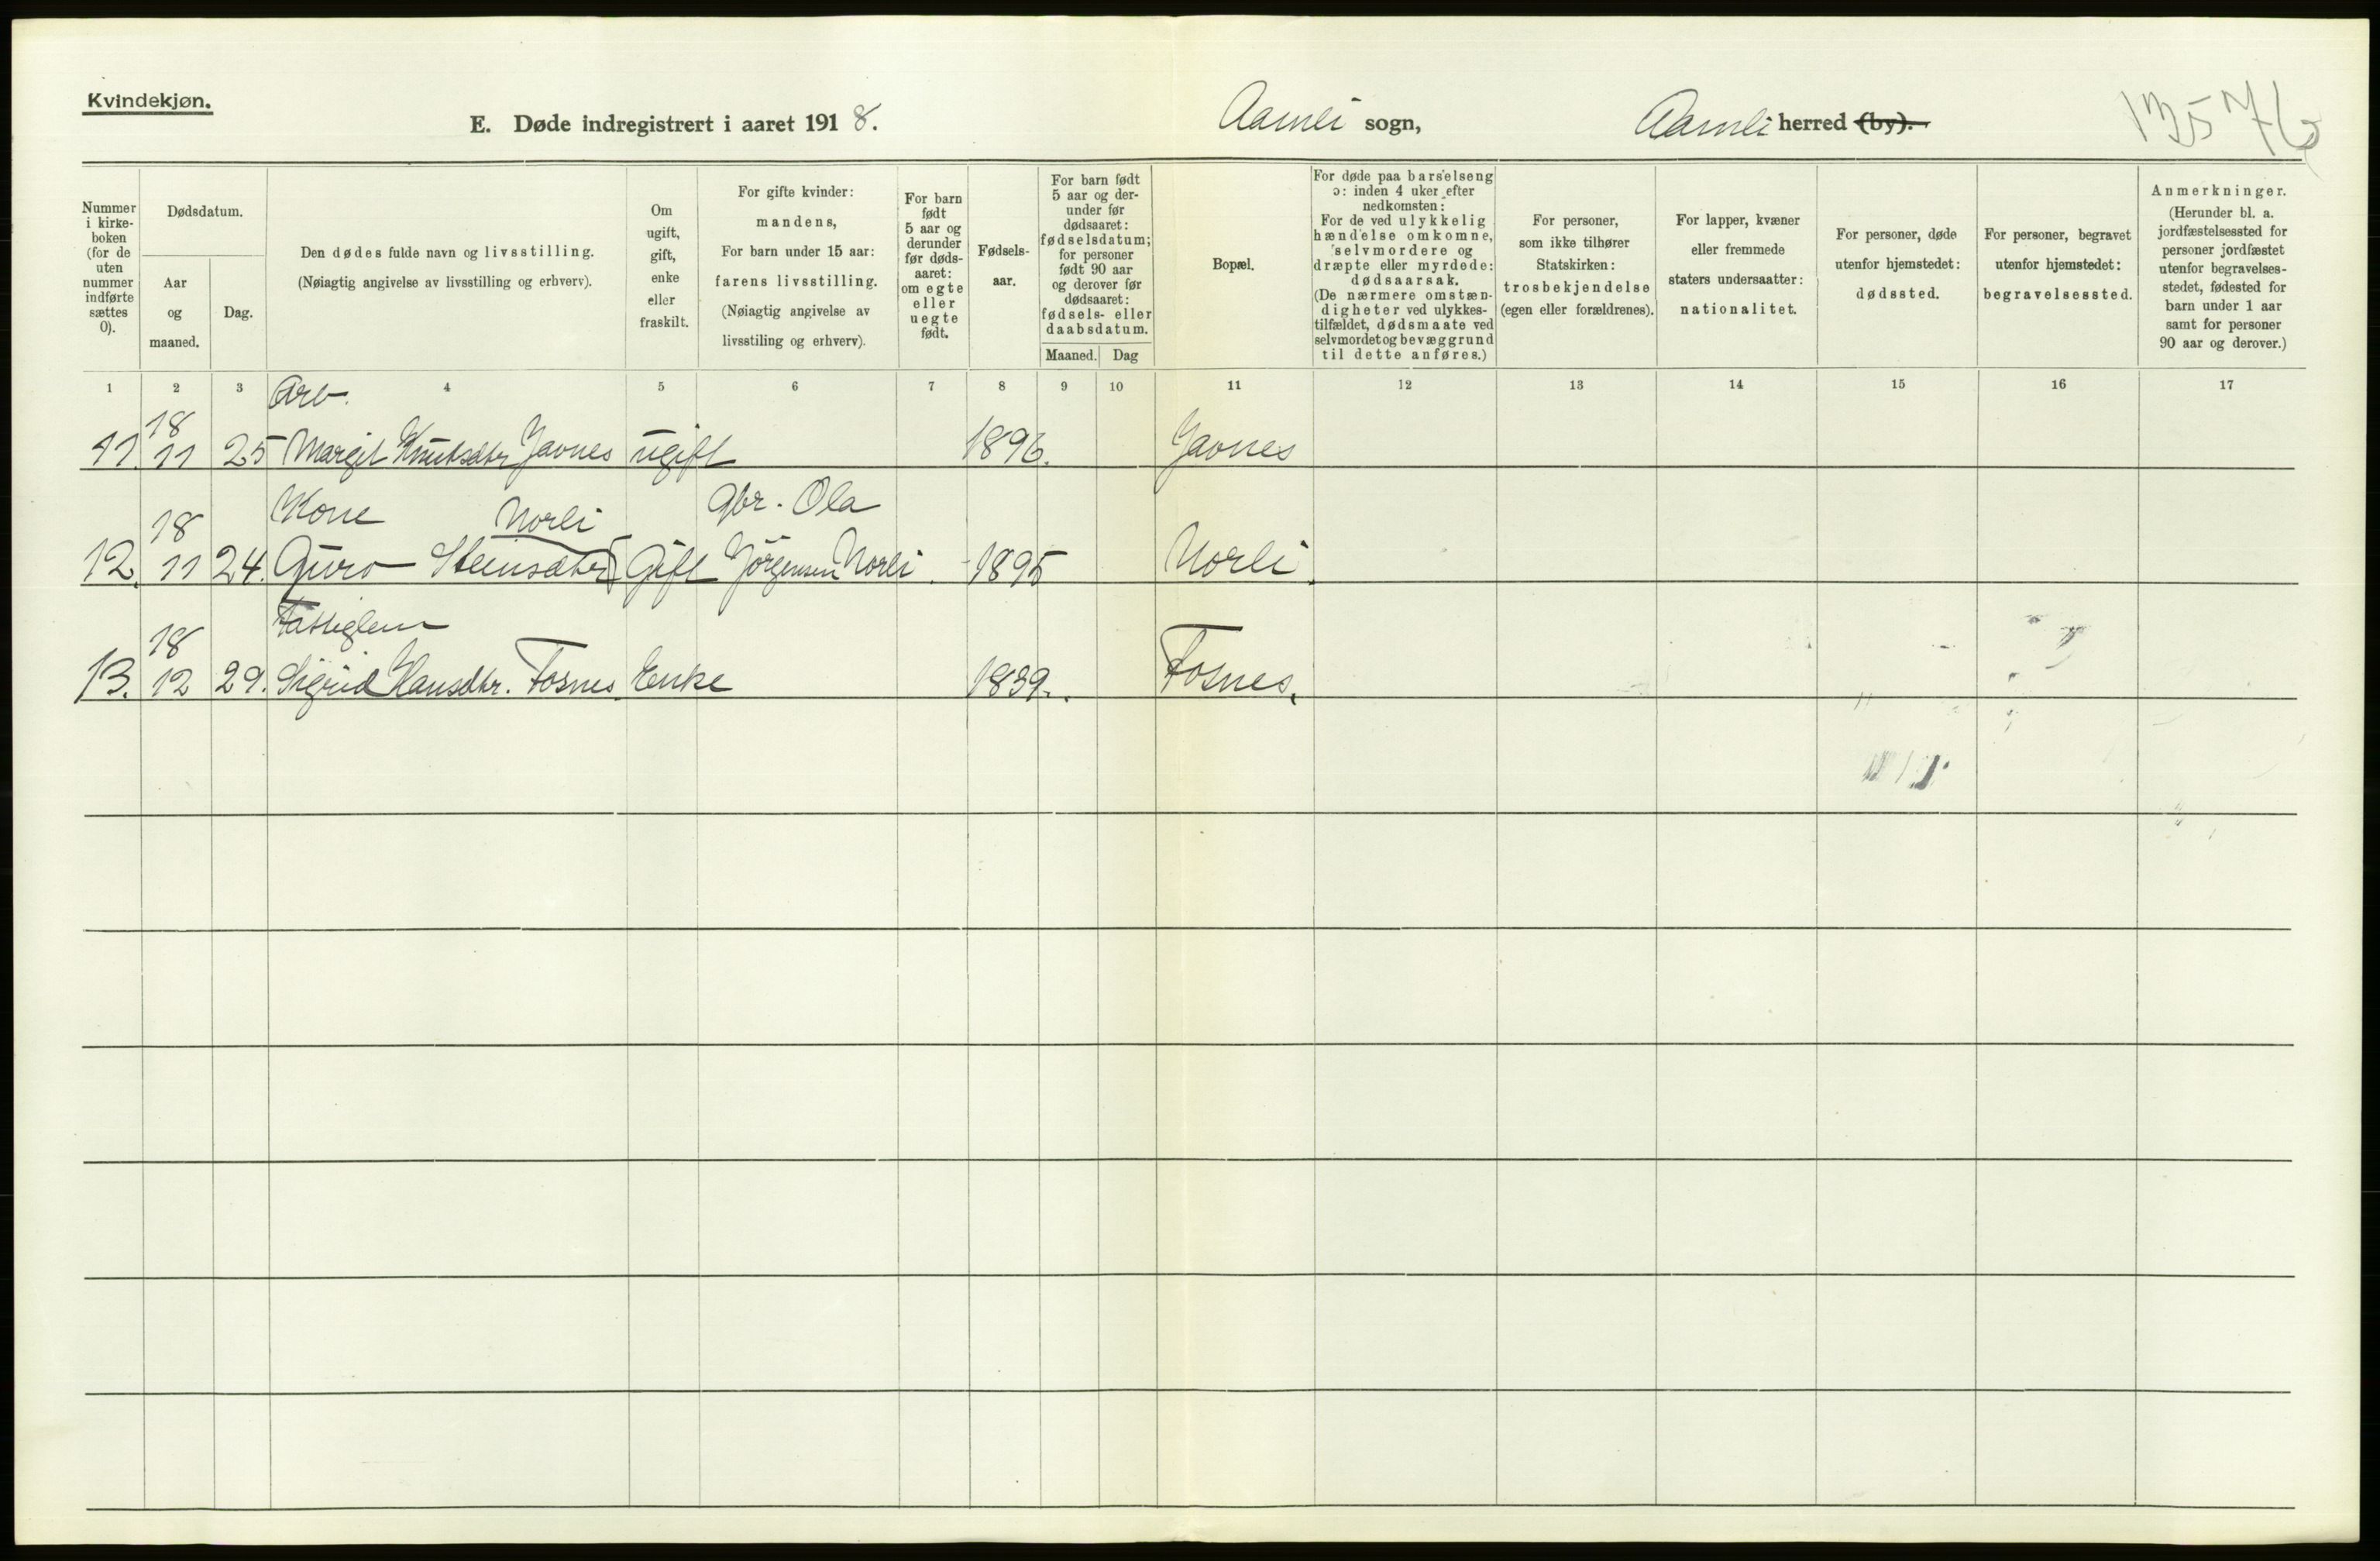 Kvindekjøn.
E. Døde indregistrert i aaret 1918. Aamli sogn, Aamli herred (by).
Nummer i kirke-boken (for de uten nummer indførte sættes 0).
Dødsdatum.
Aar og maaned.
Dag.
Den dødes fulde navn og livsstilling.
(Nøiagtig angivelse av livsstilling og erhverv).
Om ugift, gift, enke eller fraskilt.
For gifte kvinder:
mandens,
For barn under 15 aar:
farens livsstilling.
(Nøiagtig angivelse av
livsstiling og erhverv).
For barn født 5 aar og derunder før døds-aaret: om egte eller uegte født.
Fødsels-aar.
For barn født 5 aar og der-under før dødsaaret: fødselsdatum; for personer født 90 aar og derover før dødsaaret: fødsels- eller daabsdatum.
Maaned. Dag
Bopæl.
For døde paa barselseng ɔ: inden 4 uker efter nedkomsten:
For de ved ulykkelig hændelse omkomne, selvmordere og dræpte eller myrdede: dødsaarsak.
(De nærmere omstæn-digheter ved ulykkes-tilfældet, dødsmaate ved selvmordet og bevæggrund til dette anføres.)
For personer, som ikke tilhører Statskirken: trosbekjendelse (egen eller forældrenes).
For lapper, kvæner eller fremmede staters undersaatter: nationalitet.
For personer, døde utenfor hjemstedet: dødssted.
For personer, begravet utenfor hjemstedet: begravelsessted.
Anmerkninger.
(Herunder bl. a. jordfæstelsessted for personer jordfæstet utenfor begravelses-stedet, fødested for barn under 1 aar samt for personer 90 aar og derover.)
1 2 3 4 5 6 7 8 9 10 11 12 13 14 15 16 17
18 Arb.
11. 11 25 Margit Knutsdtr Javnes ugift 1896. Javnes
18 Kone Norli Gbr. Ola
12. 11 24. Guro Steinsdtr Gift Jörgensen Norli. 1895 Norli.
18 Fattiglem
13. 12 29. Sigrid Hansdtr. Fosnes Enke 1839. Fosnes.